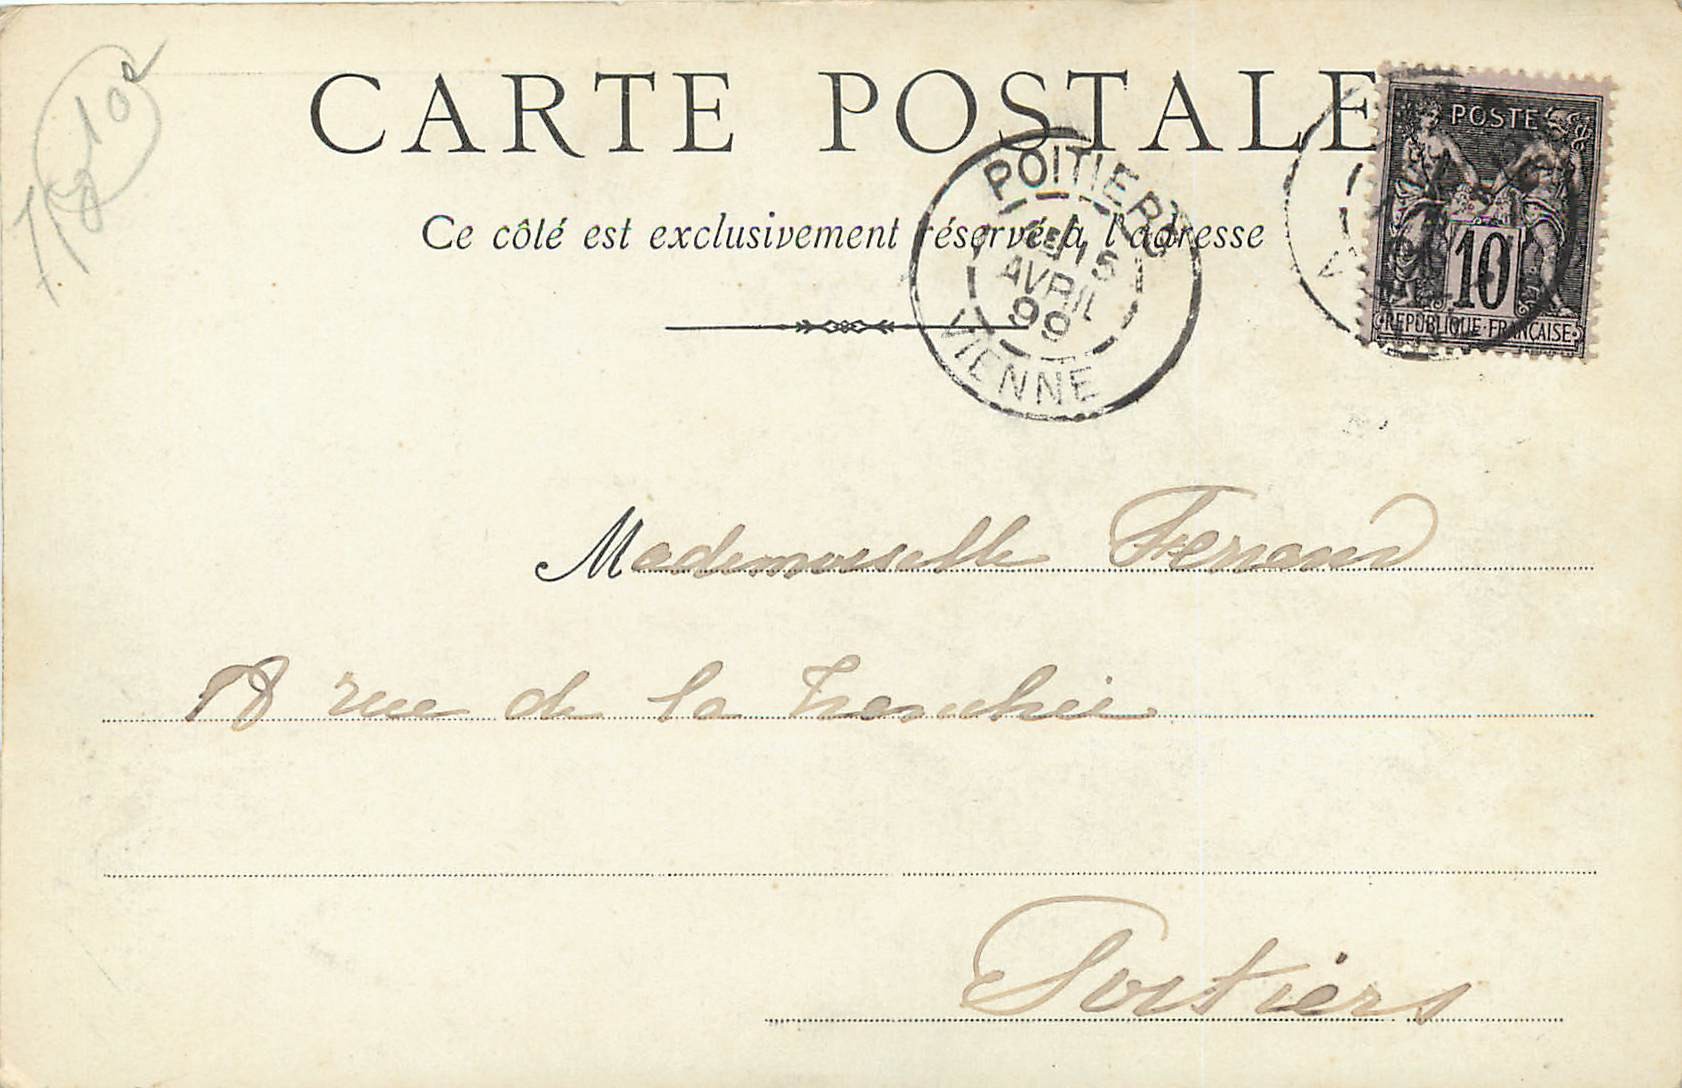 CARTE POSTALE
Ce côté est exclusivement réservé à l'adresse
POITIERS
2E 15
AVRIL
99
VIENNE
POSTE
10
RÉPUBLIQUE FRANÇAISE
Mademoiselle Ferrand
18 rue de la Tranchée
Poitiers